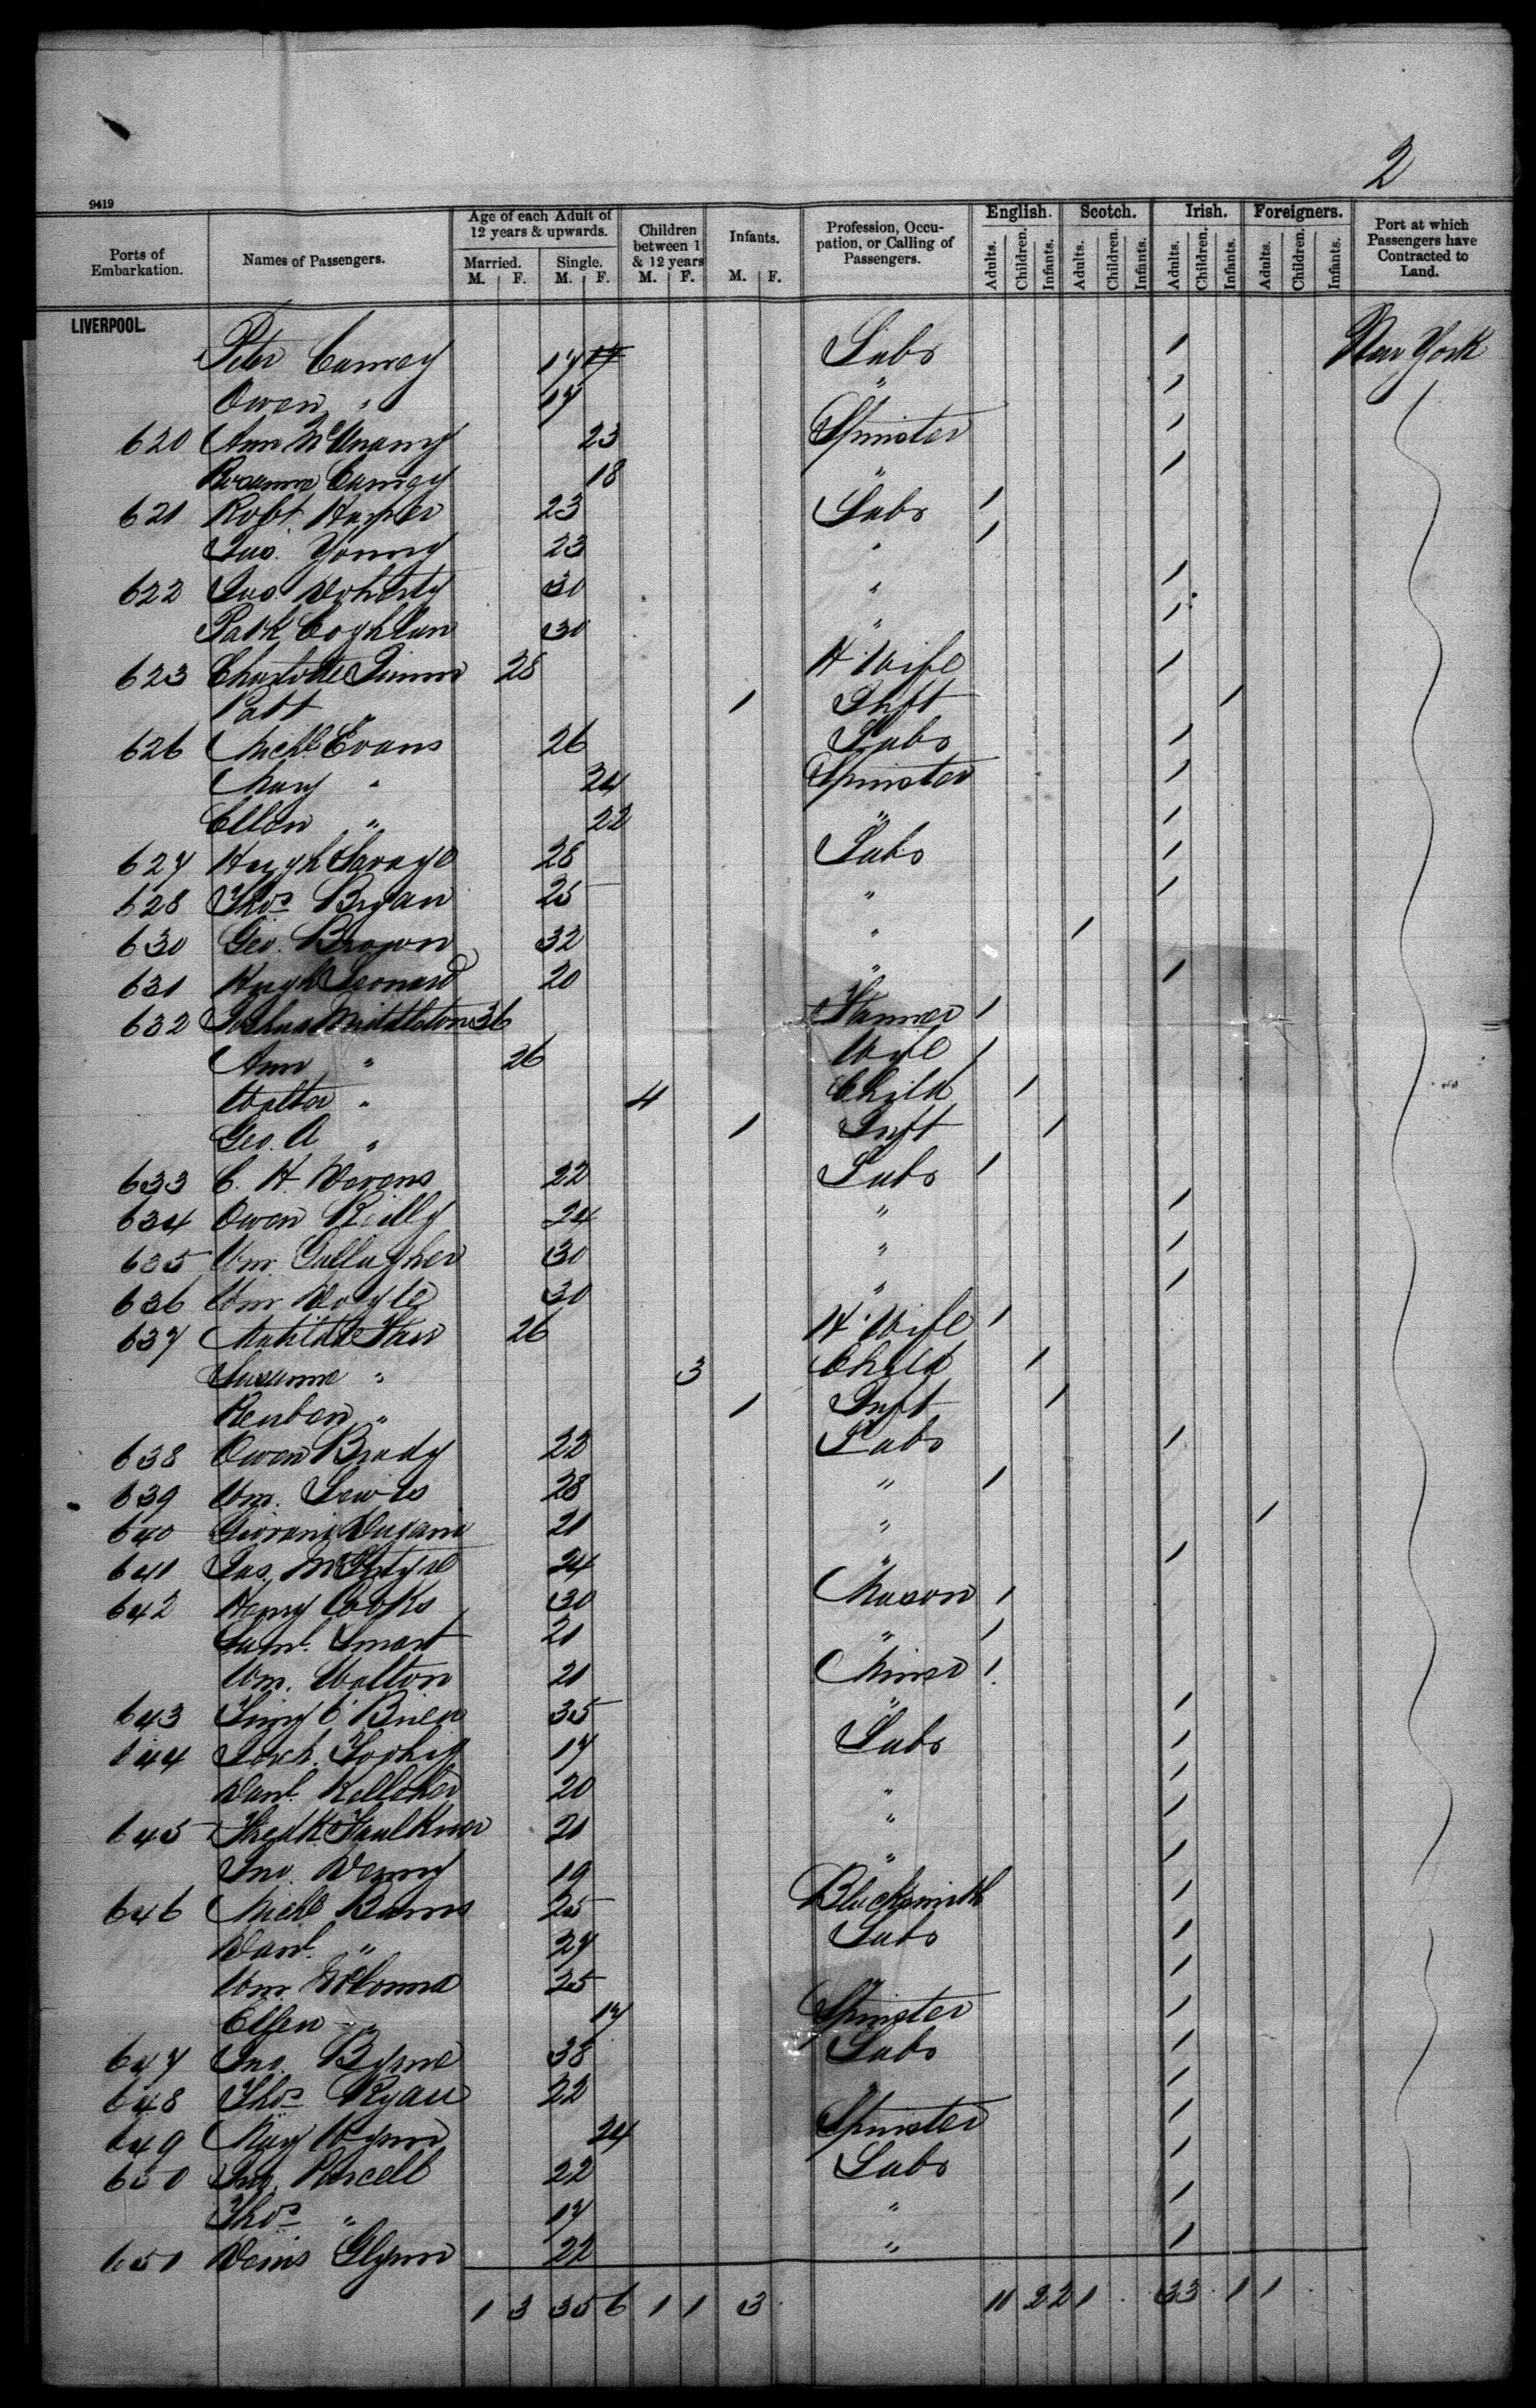 2
9419
Ports of Embarkation. Names of Passengers. Age of each Adult of 12 years & upwards. Married. M. F. Single. M. F. Children between 1 & 12 years M. F. Infants. M. F. Profession, Occupation, or Calling of Passengers. English. Adults. Children. Infants. Scotch. Adults. Children. Infants. Irish. Adults. Children. Infants. Foreigners. Adults. Children. Infants. Port at which Passengers have Contracted to Land.
LIVERPOOL.
Peter 17 17 Labr / New York
Owen " 17 " /
620 Ann 23 Spinster /
Roseanna 18 " /
621 Robt. Harper 23 Labr /
Jas. Young 23 " /
622 Jas. Doherty 30 " /
Patk Coghlan 30 " /
623 Charlotte 28 H. Wife /
Patt " / Inft /
626 Michl Evans 26 Labr /
Mary " 24 Spinster /
Ellen " 22 " /
627 Hugh Savage 28 Labr /
628 Thos Bryan 25 " /
630 Geo. Brown 32 " /
631 Hugh Leonard 20 " /
632 Joshua Middleton 36 Farmer /
Ann " 26 Wife /
Walter " 4 Child /
Geo. A " / Inft /
633 C. H. 22 Labr /
634 Owen Reilly 24 " /
635 Wm. Gallagher 30 " /
636 Wm. Doyle 30 " /
637 Matilda 26 H. Wife /
Susanna " 3 Child /
Reuben " / Inft /
638 Owen Brady 22 Labr /
639 Wm. Lewis 28 " /
640 21 " /
641 Jas. McIntyre 24 " /
642 Henry Cooks 30 Mason /
Saml. Smart 21 " /
Wm. Walton 21 Miner /
643 Timy O'Brien 35 " /
644 17 Labr /
Danl. Kelleher 20 " /
645 Fredk Faulkner 21 " /
Jno. Denny 19 " /
646 Michl Burns 25 Blacksmith /
Danl. " 27 Labr /
Wm. 25 " /
Ellen " 17 Spinster /
647 Jno. Byrne 38 Labr /
648 Thos Ryan 22 " /
649 Mary Wynn 24 Spinster /
650 Jno. Purcell 22 Labr /
Thos " 17 " /
651 Denis Glynn 22 " /
1 3 35 6 1 1 3 11 2 2 1 33 1 1